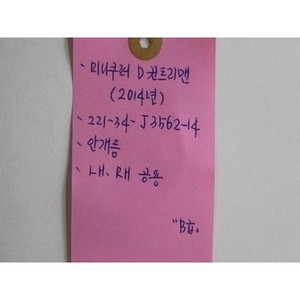 - 미니쿠퍼 D 컨트리맨
(2014년)
- 221-34-J3562-14
- 안개등
- LH. RH 공용
"B급.